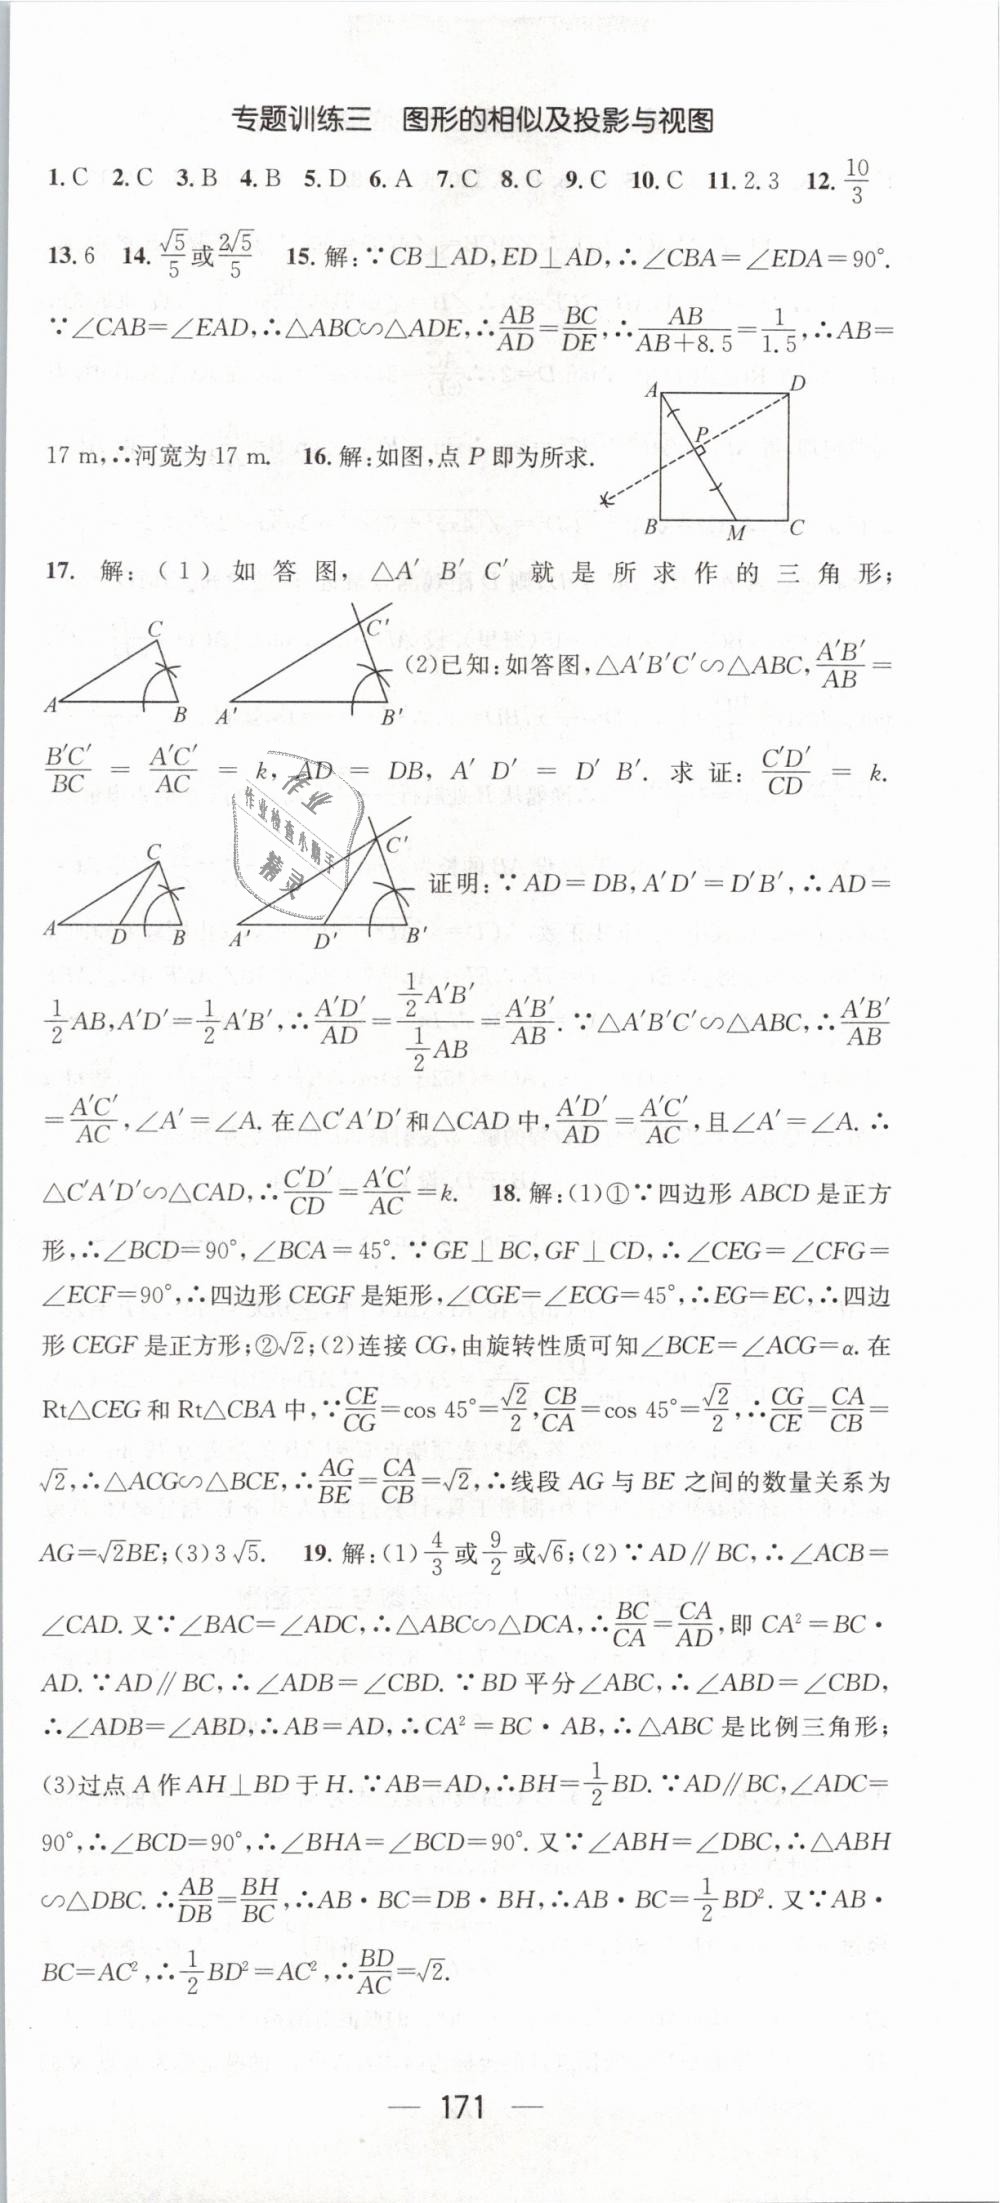 专题训练三　图形的相似及投影与视图
1. C 2. C 3. B 4. B 5. D 6. A 7. C 8. C 9. C 10. C 11. 2.3 12. 10/3
13. 6 14. √5/5或2√5/5 15. 解:∵CB⊥AD,ED⊥AD,∴∠CBA=∠EDA=90°.
∵∠CAB=∠EAD,∴△ABC∽△ADE,∴AB/AD=BC/DE,∴AB/(AB+8.5)=1/1.5,∴AB=
17 m,∴河宽为17 m. 16. 解:如图,点P即为所求.
A D P B M C
17. 解:(1)如答图,△A′B′C′就是所求作的三角形;
A B C A′ B′ C′
(2)已知:如答图,△A′B′C′∽△ABC,A′B′/AB=
B′C′/BC=A′C′/AC=k,AD=DB,A′D′=D′B′. 求证:C′D′/CD=k.
作业
作业检查小助手
精灵
A D B C A′ D′ B′ C′
证明:∵AD=DB,A′D′=D′B′,∴AD=
1/2AB,A′D′=1/2A′B′,∴A′D′/AD=(1/2A′B′)/(1/2AB)=A′B′/AB. ∵△A′B′C′∽△ABC,∴A′B′/AB
=A′C′/AC,∠A′=∠A. 在△C′A′D′和△CAD中,A′D′/AD=A′C′/AC,且∠A′=∠A. ∴
△C′A′D′∽△CAD,∴C′D′/CD=A′C′/AC=k. 18. 解:(1)①∵四边形ABCD是正方
形,∴∠BCD=90°,∠BCA=45°. ∵GE⊥BC,GF⊥CD,∴∠CEG=∠CFG=
∠ECF=90°,∴四边形CEGF是矩形,∠CGE=∠ECG=45°,∴EG=EC,∴四边
形CEGF是正方形;②√2;(2)连接CG,由旋转性质可知∠BCE=∠ACG=α. 在
Rt△CEG和Rt△CBA中,∵CE/CG=cos 45°=√2/2,CB/CA=cos 45°=√2/2,∴CG/CE=CA/CB=
√2,∴△ACG∽△BCE,∴AG/BE=CA/CB=√2,∴线段AG与BE之间的数量关系为
AG=√2BE;(3)3√5. 19. 解:(1)4/3或9/2或√6;(2)∵AD∥BC,∴∠ACB=
∠CAD. 又∵∠BAC=∠ADC,∴△ABC∽△DCA,∴BC/CA=CA/AD,即CA²=BC·
AD. ∵AD∥BC,∴∠ADB=∠CBD. ∵BD平分∠ABC,∴∠ABD=∠CBD,
∴∠ADB=∠ABD,∴AB=AD,∴CA²=BC·AB,∴△ABC是比例三角形;
(3)过点A作AH⊥BD于H. ∵AB=AD,∴BH=1/2BD. ∵AD∥BC,∠ADC=
90°,∴∠BCD=90°,∴∠BHA=∠BCD=90°. 又∵∠ABH=∠DBC,∴△ABH
∽△DBC. ∴AB/DB=BH/BC,∴AB·BC=DB·BH,∴AB·BC=1/2BD². 又∵AB·
BC=AC²,∴1/2BD²=AC²,∴BD/AC=√2.
— 171 —